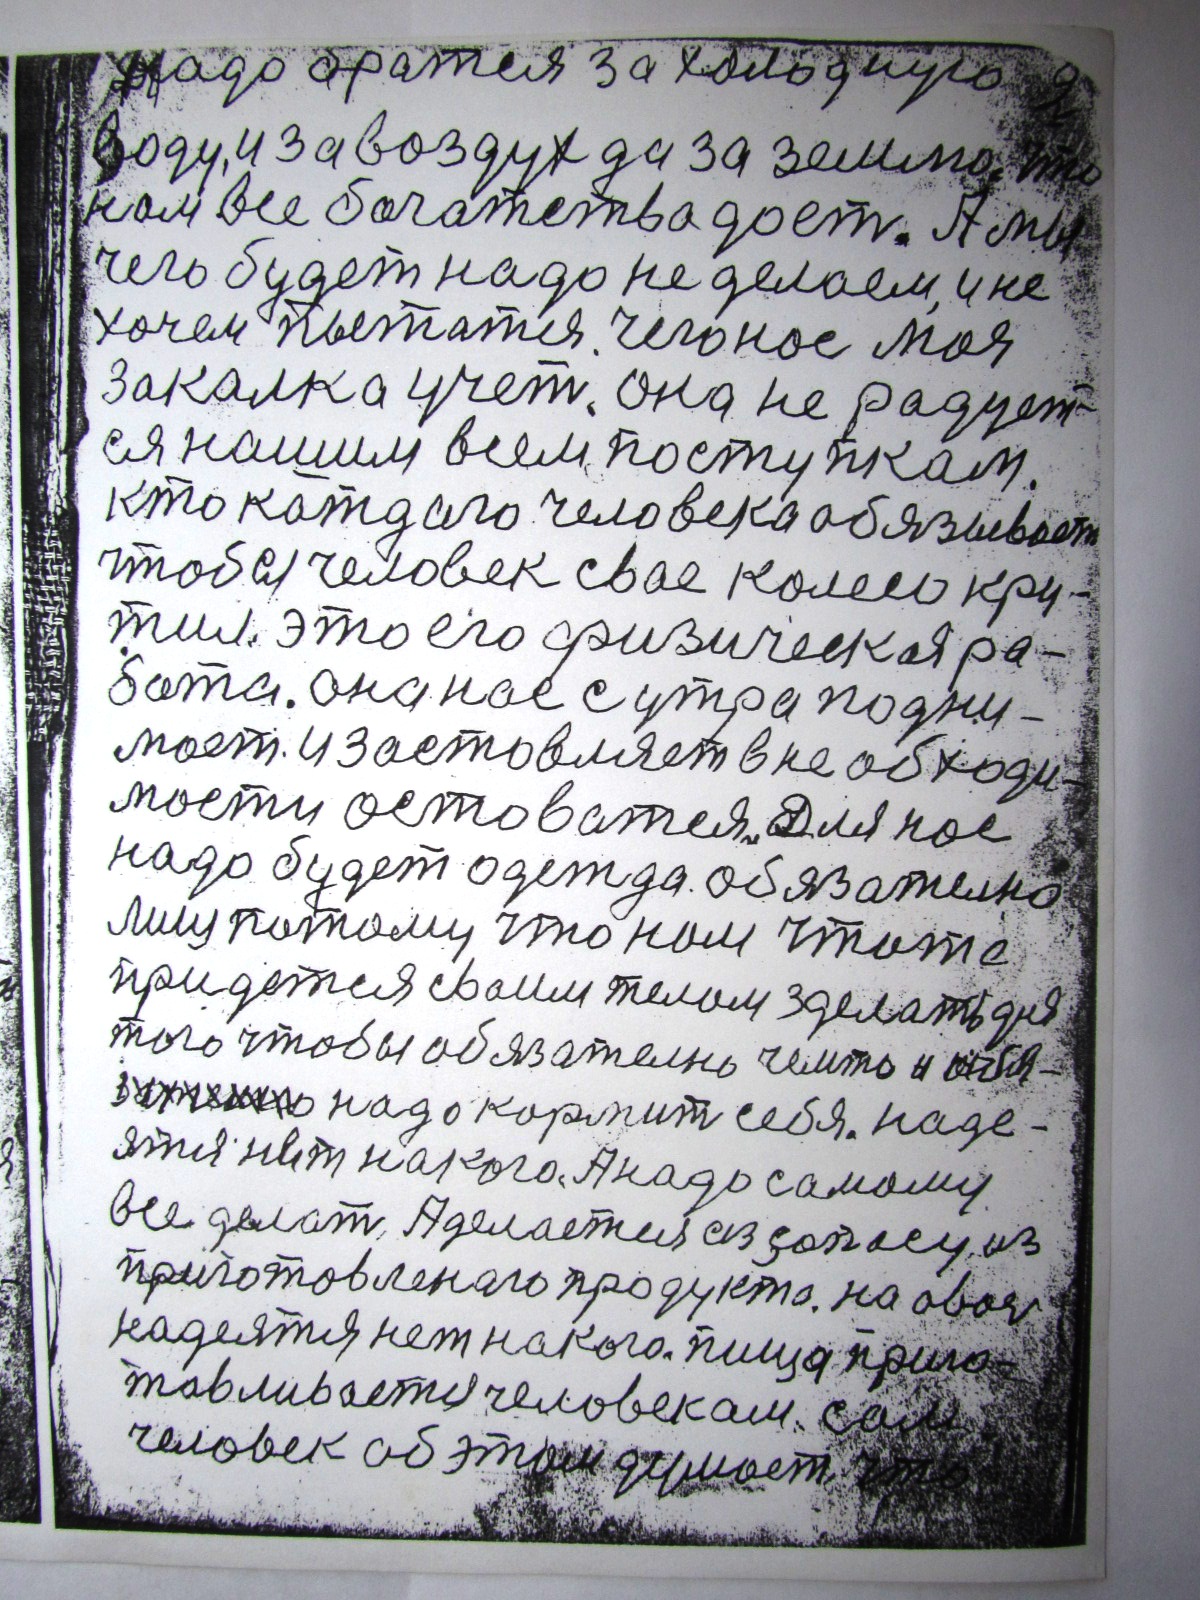 надо братся за холодную 2
воду, и за воздух да за землю. что
нам все богатства даст. А мы
чего будет надо не делаем, и не
хочем пытатся. чего нас моя
закалка учет. она не радует-
ся нашим всем поступкам.
кто катдаго человека обязывает
чтобы человек свае колесо кру-
тил. это его физическая ра-
бота. она нас с утра подни-
мает. и заставляет в не обходи-
мости оставатся. Для нас
надо будет одетда. обязателно
потому что нам
придется своим телом зделать для
того чтобы обязателно чемто и обя-
надо кормит себя. наде-
ятся нет на кого. А надо самому
все делат, А делается из запасу, из
приготовленаго продукта. на
надеятся нет на кого. пища приго-
тавливается человекам. сам
человек об этом думает, что